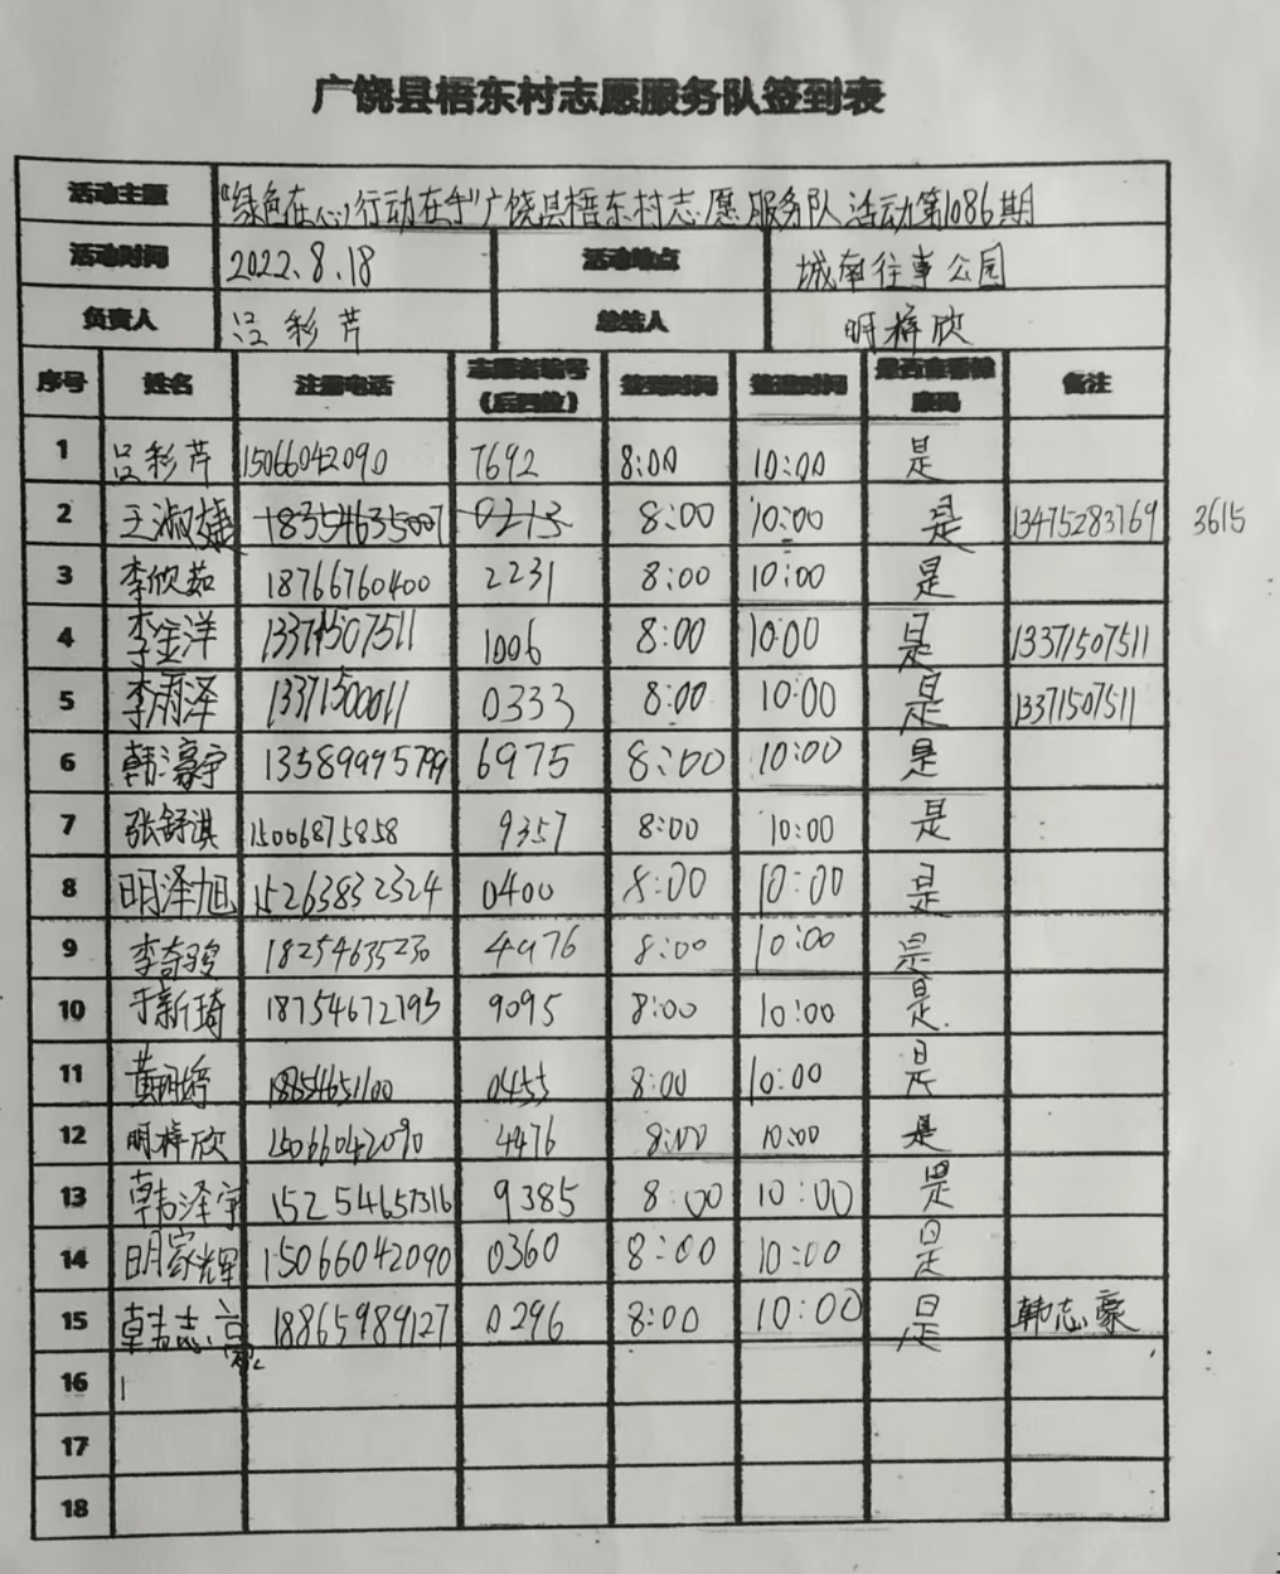 广饶县梧东村志愿服务队签到表
活动主题 "绿色在心,行动在手"广饶县梧东村志愿服务队活动第1086期
活动时间 2022.8.18 活动地点 城南往事公园
负责人 吕彩芹 总结人 明梓欣
序号 姓名 注册电话 志愿者编号(后四位) 签到时间 签退时间 是否查看健康码 备注
1 吕彩芹 15066042090 7692 8:00 10:00 是
2 王淑婕 18354635007 0213 8:00 10:00 是 13475283769 3615
3 李欣茹 18766760400 2231 8:00 10:00 是
4 李金洋 13371507511 1006 8:00 10:00 是 13371507511
5 李雨泽 0333 8:00 10:00 是 13371507511
6 韩濠宇 13589995799 6975 8:00 10:00 是
7 张舒淇 15006875858 9357 8:00 10:00 是
8 明泽旭 15263832324 0400 8:00 10:00 是
9 李奇骏 18254635230 4976 8:00 10:00 是
10 于新琦 18754672193 9095 8:00 10:00 是
11 18854651100 0455 8:00 10:00 是
12 明梓欣 15066042090 4476 8:00 10:00 是
13 韩泽宇 15254657316 9385 8:00 10:00 是
14 明家辉 15066042090 0360 8:00 10:00 是
15 韩志豪 18865989127 0296 8:00 10:00 是 韩志豪
16
17
18